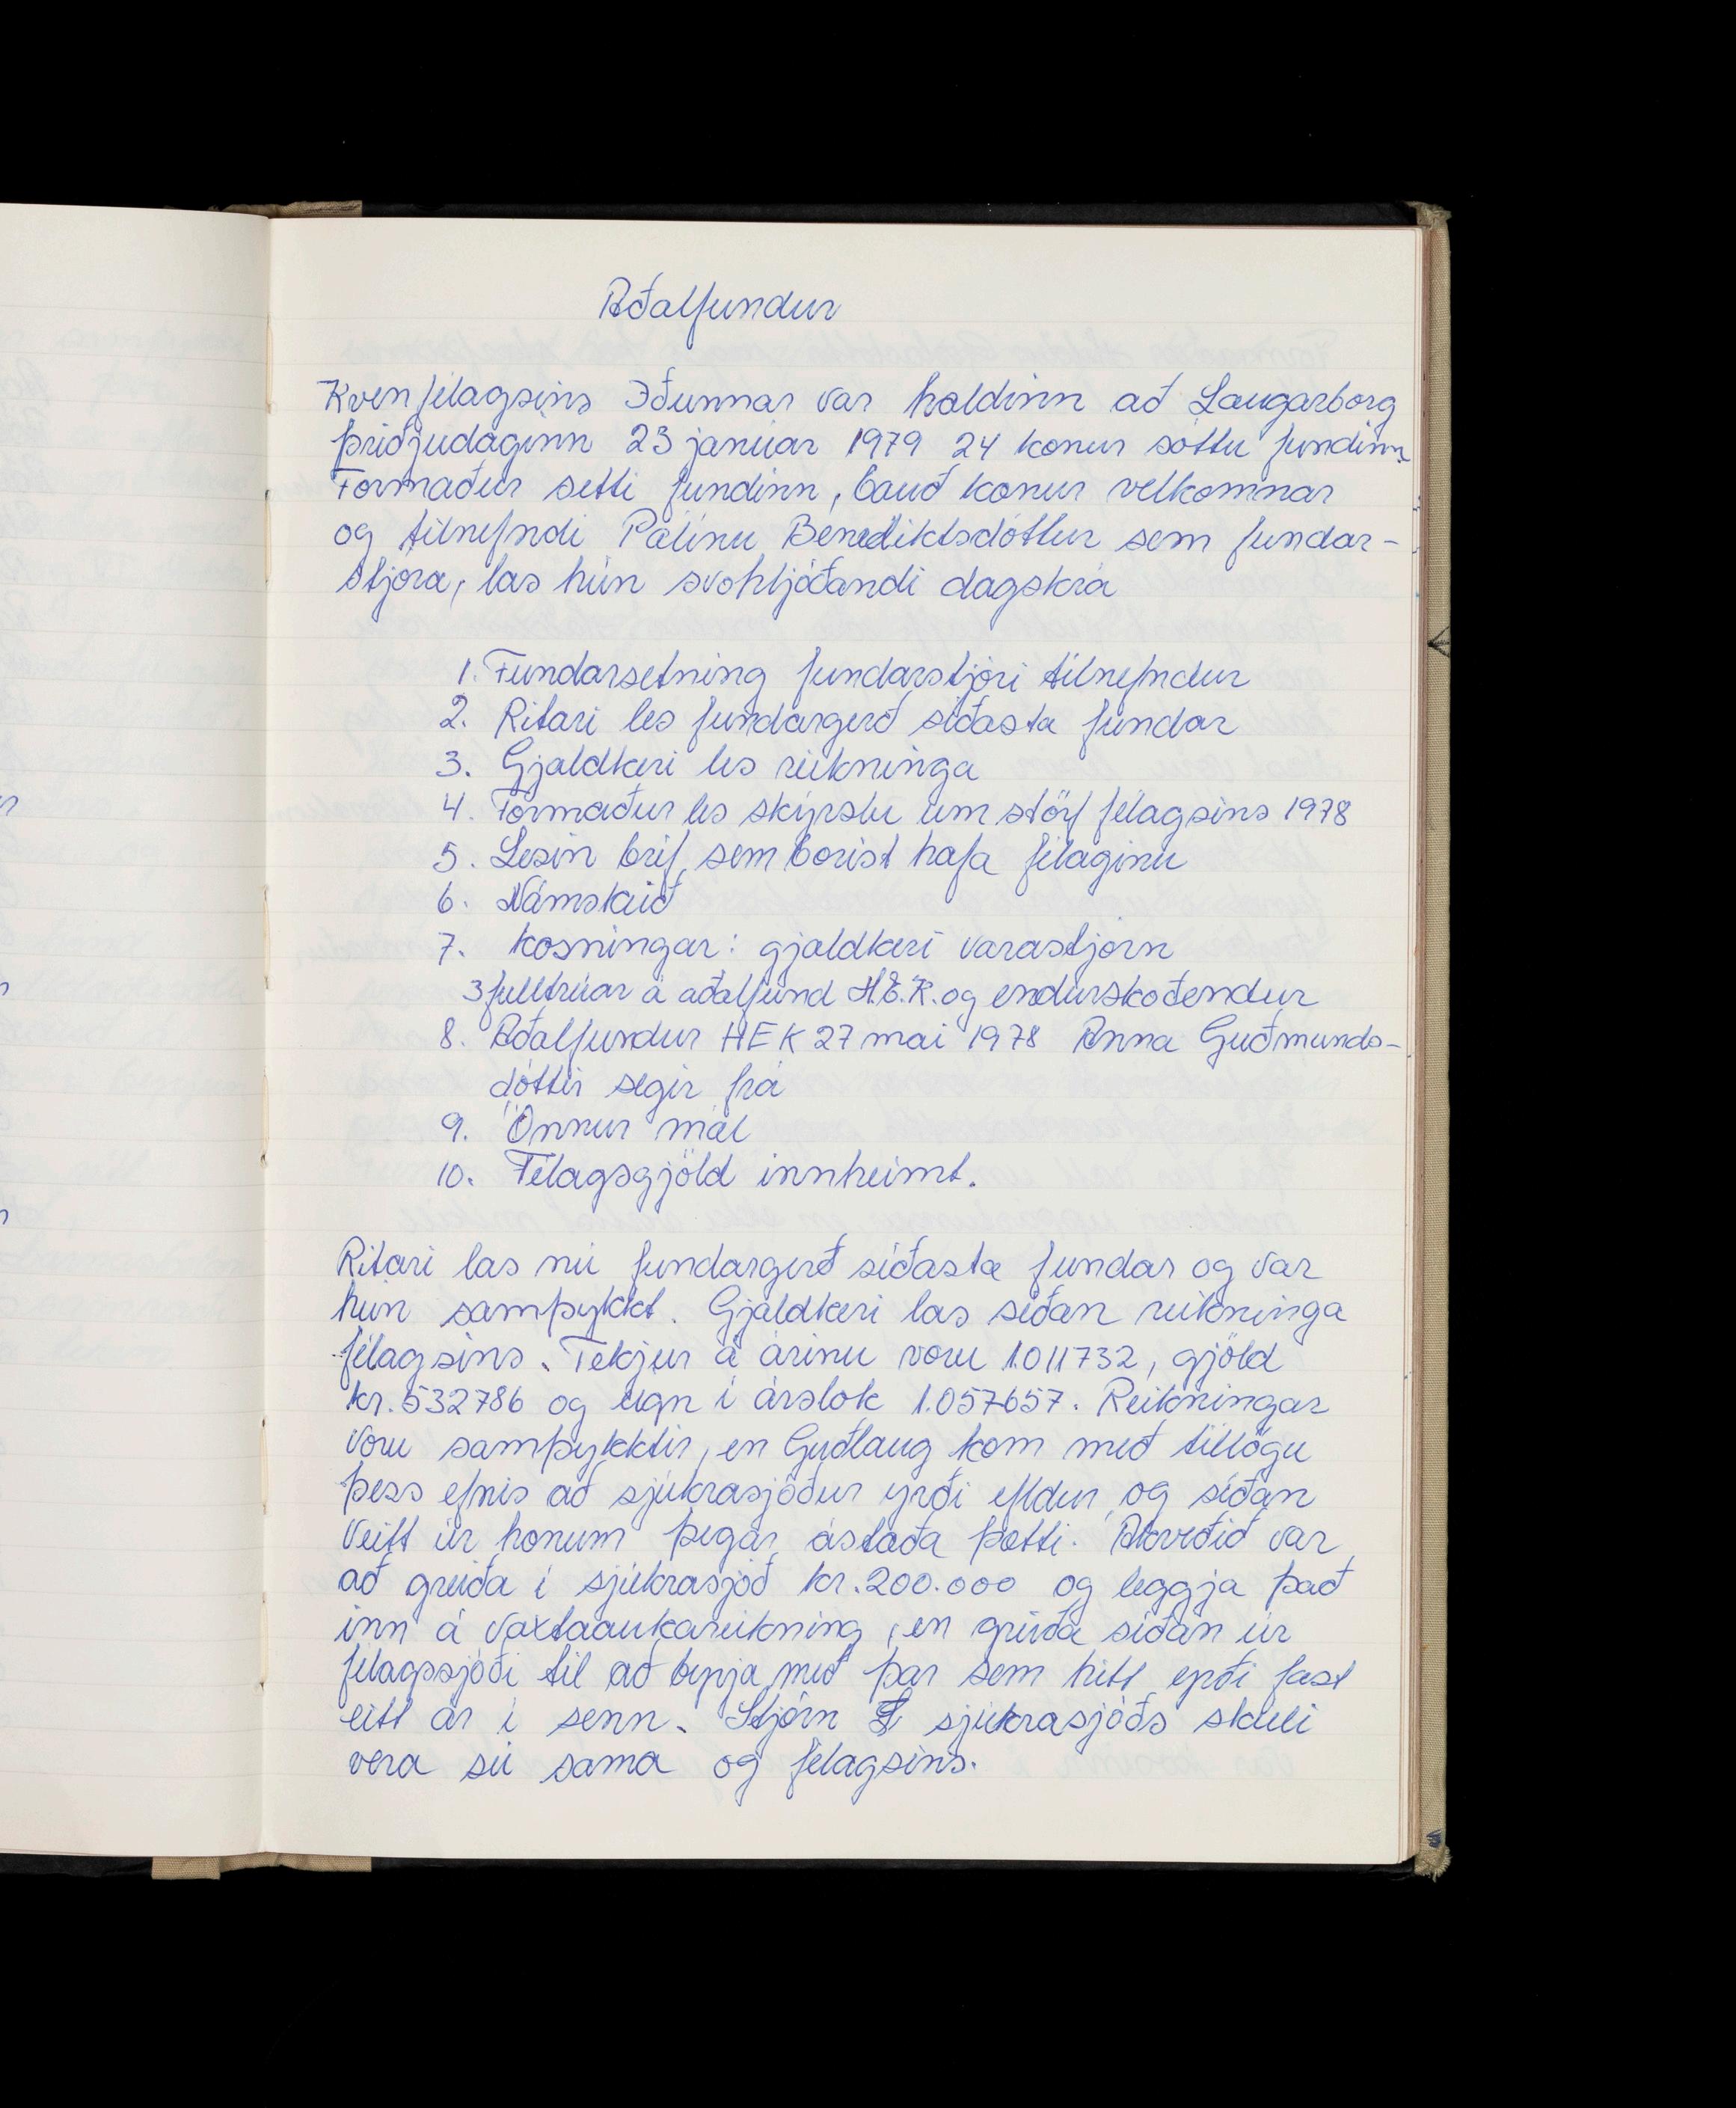 Aðalfundur
Kvenfélagsins Iðunnar var haldinn að Laugarborg
þriðjudaginn 23 janúar 1979 24 konur sóttu fundinn
Formaður setti fundinn, bauð konur velkomnar
og tilnefndi Pálínu Benediktsdóttur sem fundar-
stjóra, las hún svohljóðandi dagskrá
1. Fundarsetning fundarstjóri tilnefndur
2. Ritari les fundargerð síðasta fundar
3. Gjaldkeri les reikninga
4. Formaður les skýrslu um störf félagsins 1978
5. Lesin bréf sem borist hafa félaginu
6. Námskeið
7. Kosningar: gjaldkeri varastjórn
3 fulltrúar á aðalfund H.E.K. og endurskoðendur
8. Aðalfundur HEK 27 mai 1978 Anna Guðmunds-
dóttir segir frá
9. Önnur mál
10. Félagsgjöld innheimt.
Ritari las nú fundargerð síðasta fundar og var
hún samþykkt. Gjaldkeri las síðan reikninga
félagsins. Tekjur á árinu voru 1.011732, gjöld
kr. 532786 og eign í árslok 1.057657. Reikningar
voru samþykktir, en Guðlaug kom með tillögu
þess efnis að sjúkrasjóður yrði efldur og síðan
veitt úr honum þegar ástæða þætti. Ákveðið var
að greiða í sjúkrasjóð kr. 200.000 og leggja það
inn á vaxtaaukareikning, en greiða síðan úr
félagssjóði til að byrja með þar sem hitt yrði fast
eitt ár í senn. Stjórn sjúkrasjóðs skuli
vera sú sama og félagsins.